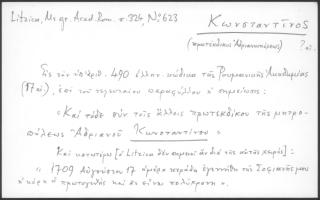 Litzica, Ms gr. Acad. Rom. σ. 324, Nο 623
Κωνσταντῖνος
(πρωτέκδικος Ἀδριανουπόλεως) ? αἰ.
Εἰς τὸν ὑπ' ἀριθ. 490 ἑλλην. κώδικα τῆς Ρουμανικῆς Ἀκαδημίας
(17 αἰ), ἐπὶ τοῦ τελευταίου παραφύλλου ἡ σημείωσις:
«Καὶ τόδε σὺν τοῖς ἄλλοις πρωτεκδίκου τῆς μητρο-
πόλεως Ἀδριανοῦ Κωνσταντίνου»
Καὶ κατωτέρω [ὁ Litzica δὲν σημειοῖ ἂν διὰ τῆς αὐτῆς χειρός]:
« 1709 Αὐγούστου 17 ἡμέρα τετράδι ἐγεννήθη τῆς Σοφιανῆς μου
ἡ κόρη ἡ πρωτογενὴς καὶ ἂς εἶναι πολύχρονη».